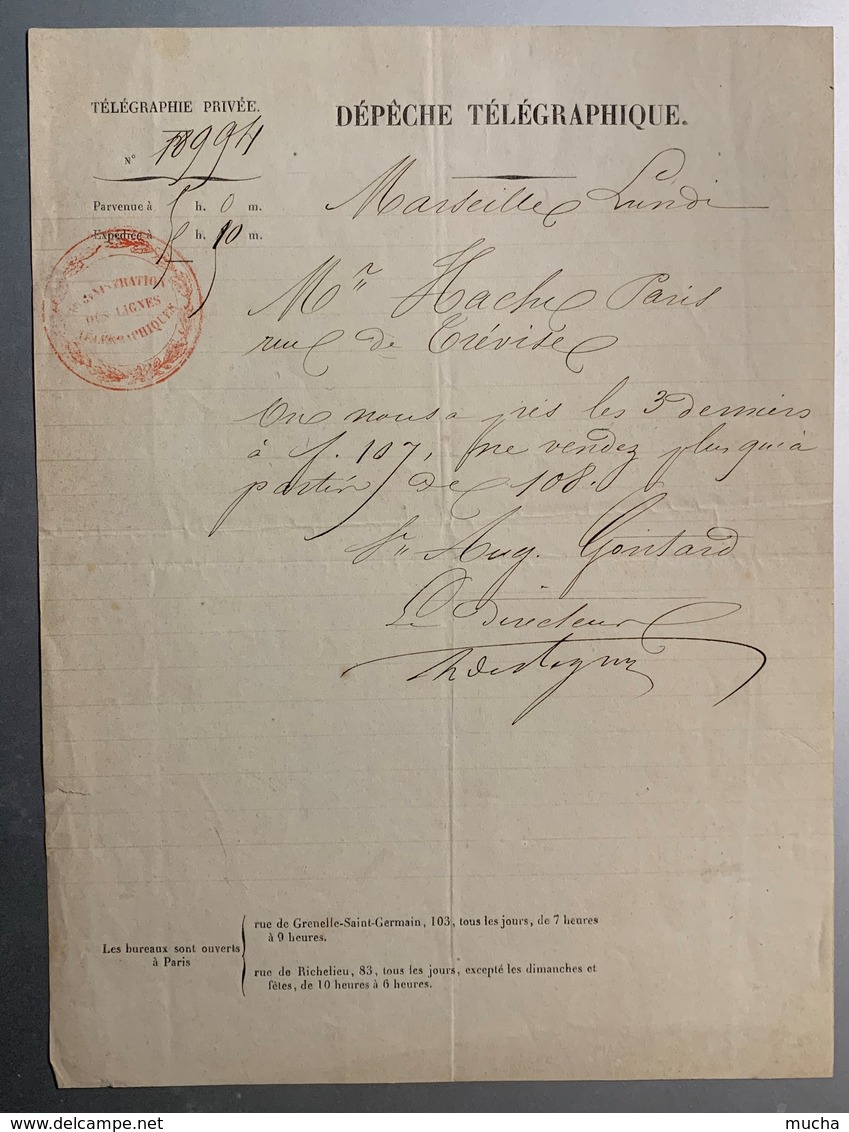 TÉLÉGRAPHIE PRIVÉE.
DÉPÊCHE TÉLÉGRAPHIQUE.
N° 18994
Parvenue à 5 h. 0 m.
Expédiée à 5 h. 10 m.
ADMINISTRATION
DES LIGNES
TÉLÉGRAPHIQUES
Marseille Lundi
Mr Hache Paris
rue de Trévise
On nous a pris les 3 derniers
à f. 107, ne vendez plus qu'à
partir de 108.
Aug. Gontard
Le Directeur
Les bureaux sont ouverts
à Paris
rue de Grenelle-Saint-Germain, 103, tous les jours, de 7 heures
à 9 heures.
rue de Richelieu, 83, tous les jours, excepté les dimanches et
fêtes, de 10 heures à 6 heures.
delcampe.net
mucha